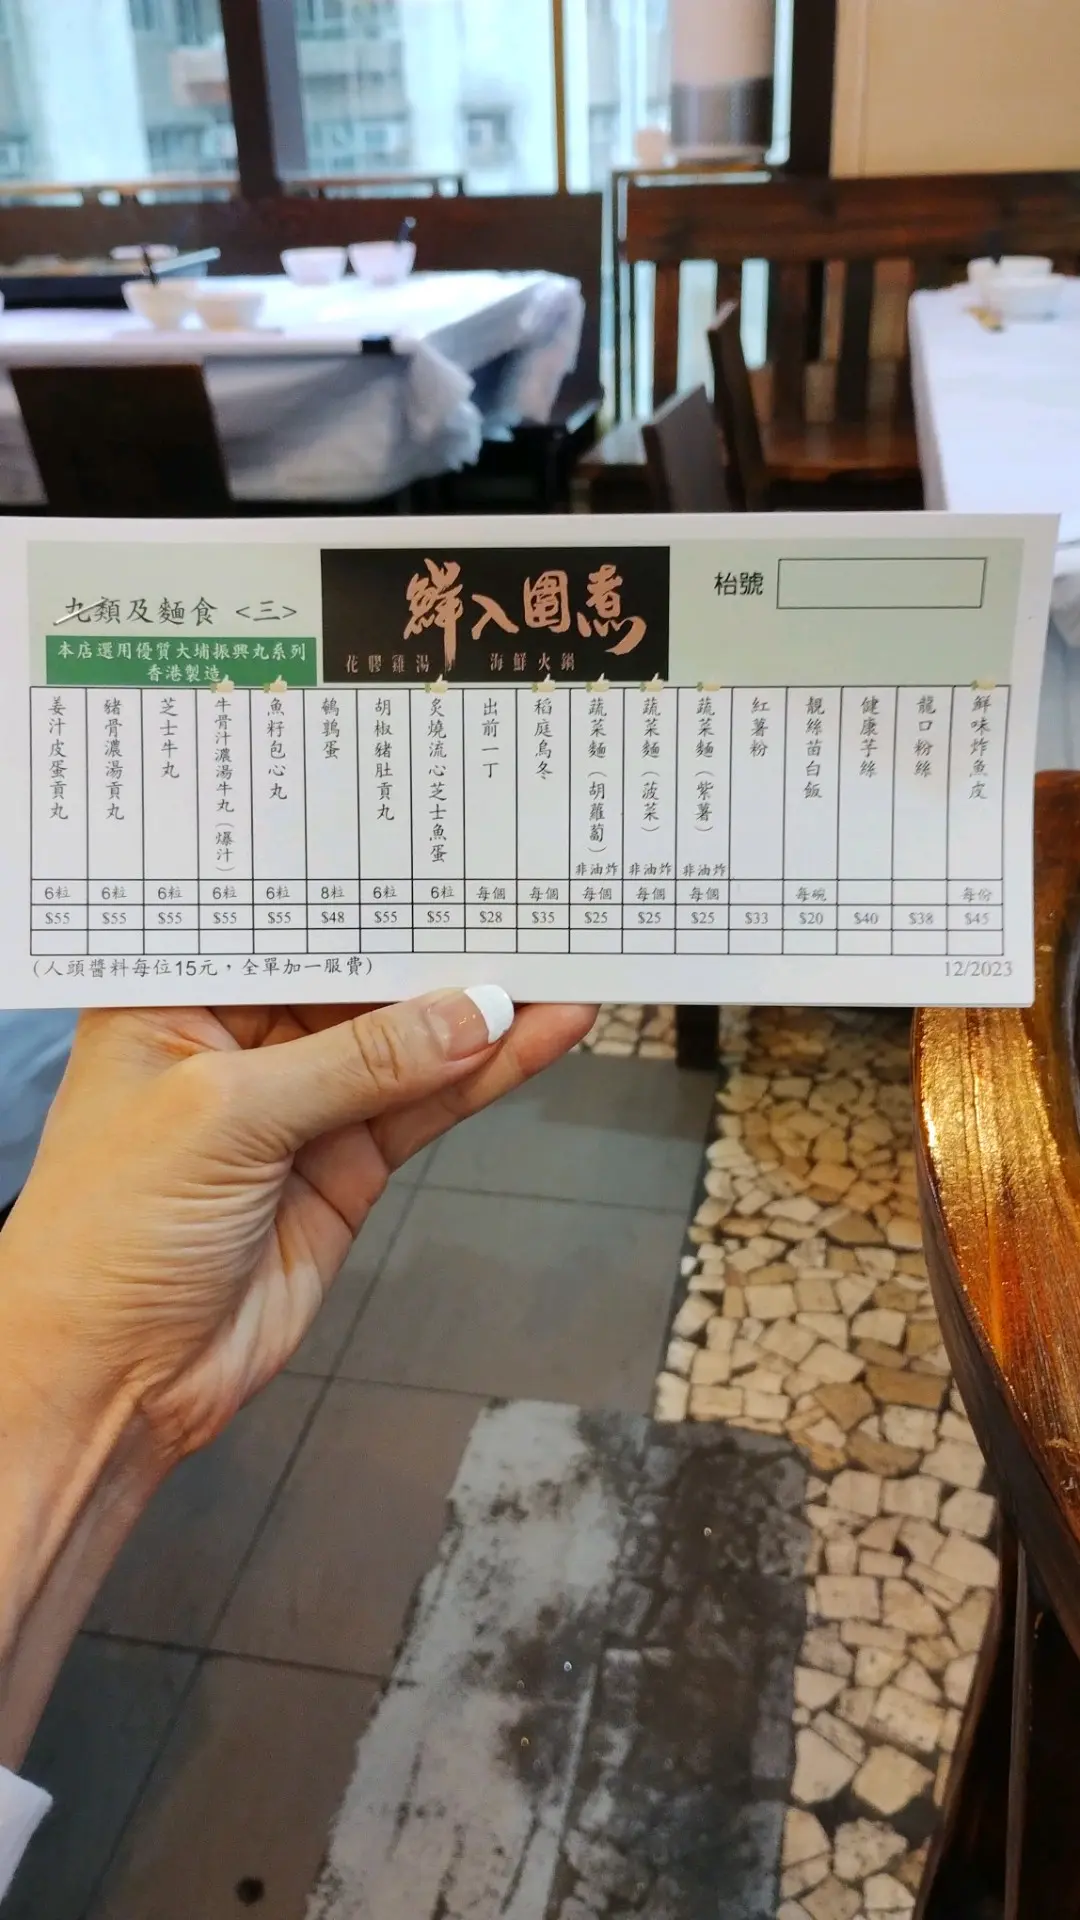 丸類及麵食 <三>
本店選用優質大埔振興丸系列
香港製造
鮮入圍煮
花膠雞湯 海鮮火鍋
枱號
姜汁皮蛋貢丸 6粒 $55
豬骨濃湯貢丸 6粒 $55
芝士牛丸 6粒 $55
牛骨汁濃湯牛丸（爆汁） 6粒 $55
魚籽包心丸 6粒 $55
鵪鶉蛋 8粒 $48
胡椒豬肚貢丸 6粒 $55
炙燒流心芝士魚蛋 6粒 $55
出前一丁 每個 $28
稻庭烏冬 每個 $35
蔬菜麵（胡蘿蔔） 非油炸 每個 $25
蔬菜麵（菠菜） 非油炸 每個 $25
蔬菜麵（紫薯） 非油炸 每個 $25
紅薯粉 $33
靚絲苗白飯 每碗 $20
健康芋絲 $40
龍口粉絲 $38
鮮味炸魚皮 每份 $45
(人頭醬料每位15元，全單加一服費)
12/2023